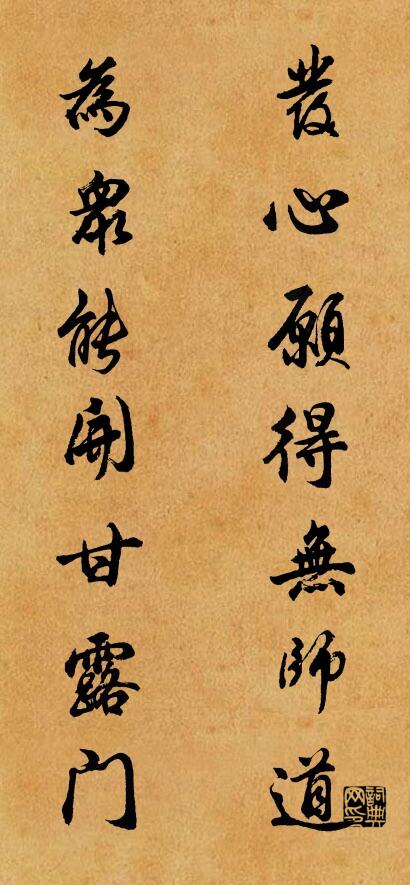 發心願得無師道
為眾能開甘露門
詞典网印